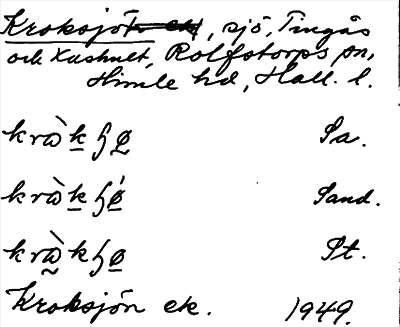 Kroksjön ek, sjö, Tingås
och Kashult, Rolfstorps sn,
Himle hd, Hall. l.
kràkʃø Sa.
kràkʃǿ Sand.
kràkʃø St.
Kroksjön ek. 1949.